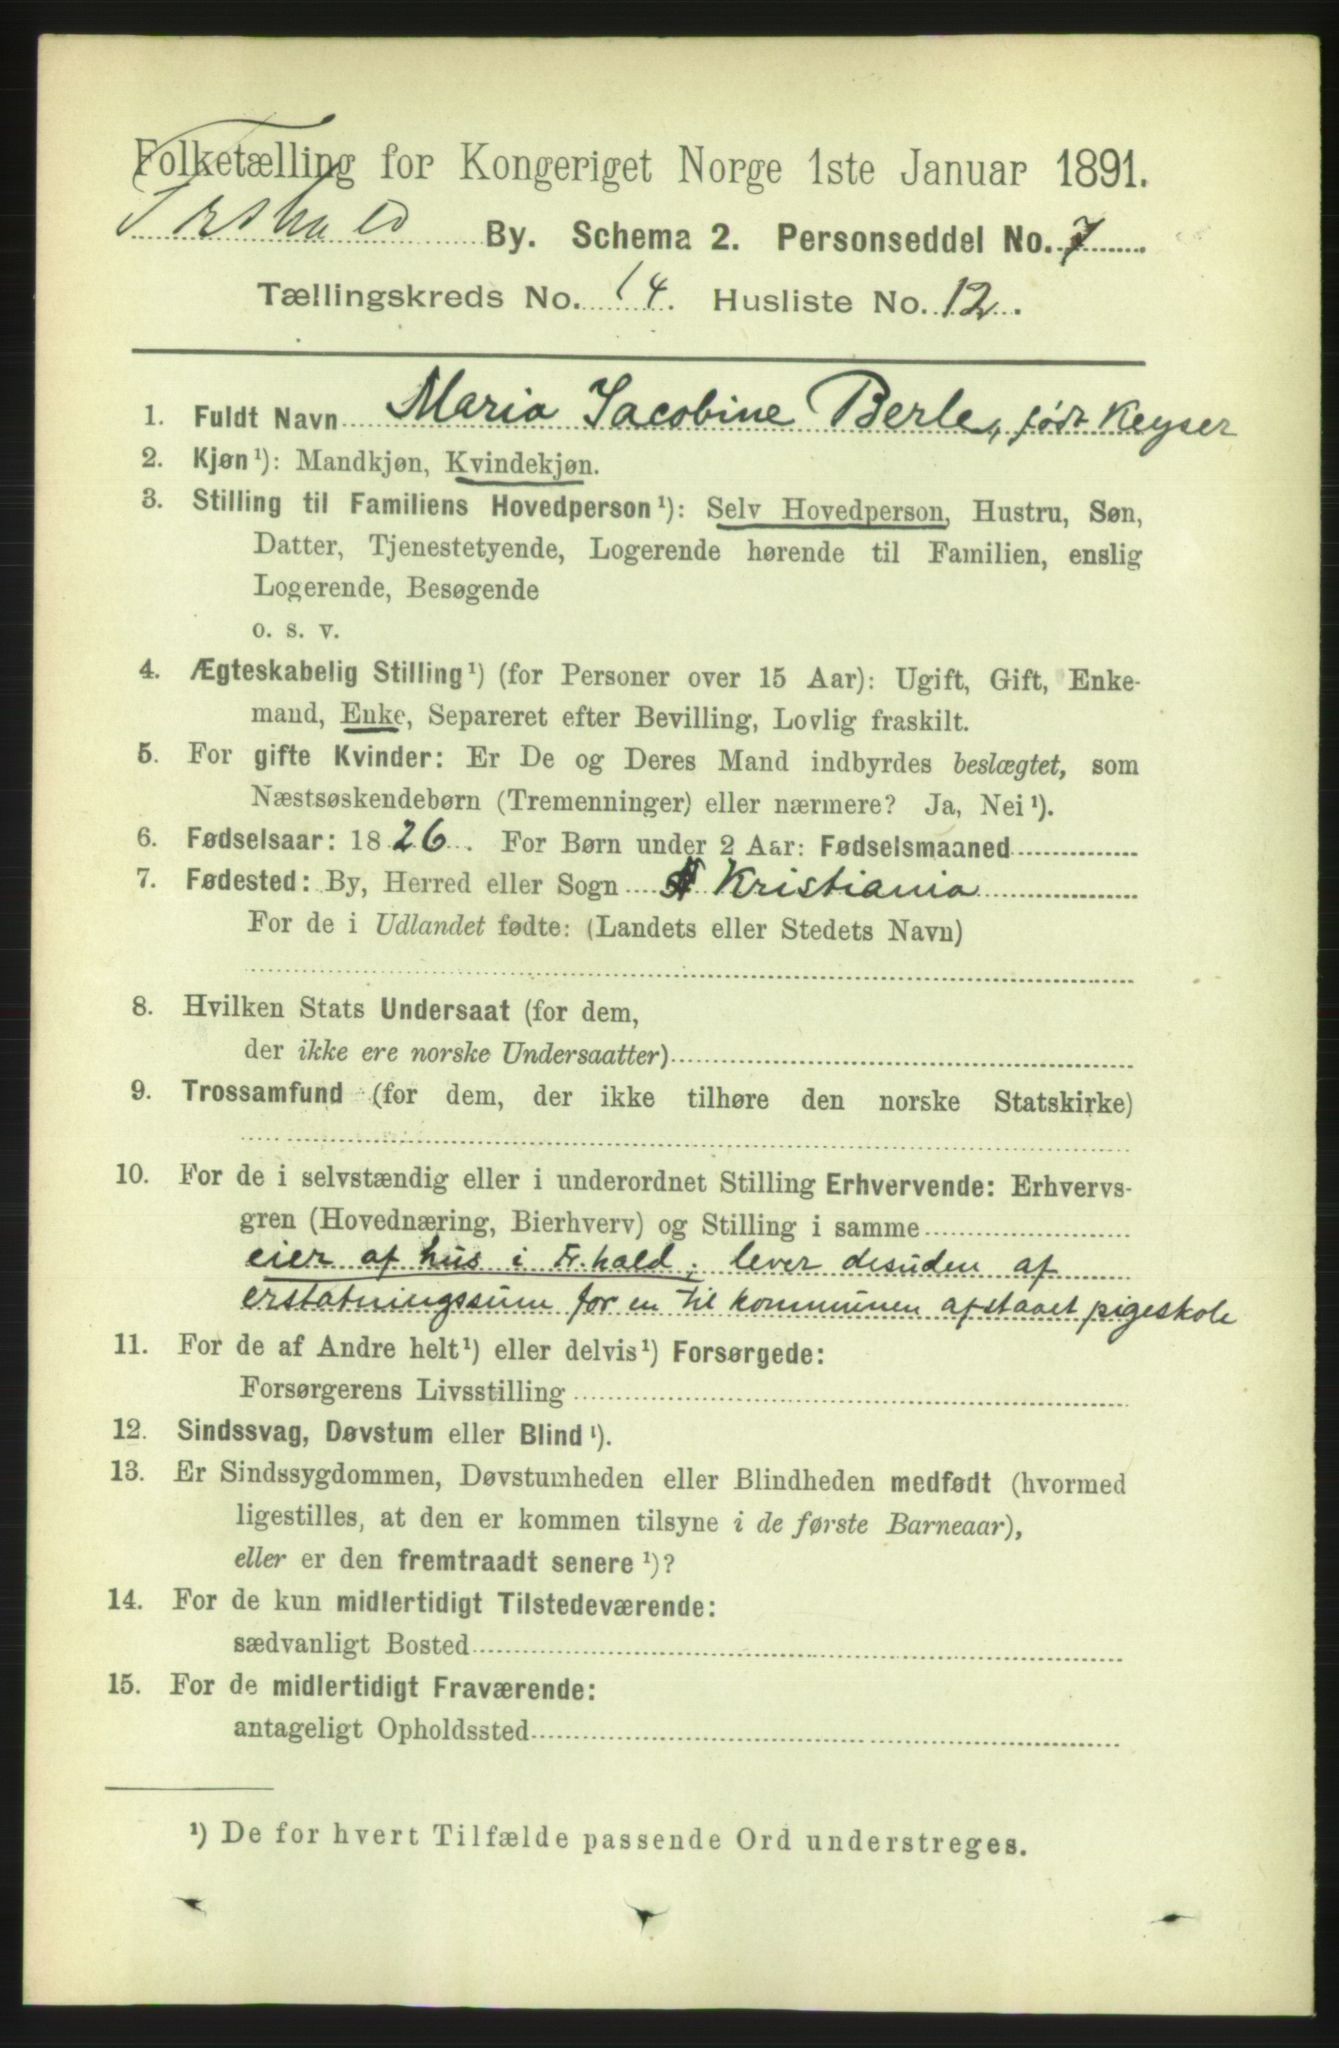 Folketælling for Kongeriget Norge 1ste Januar 1891.
Frshald By. Schema 2. Personseddel No. 7
Tællingskreds No. 14. Husliste No. 12.
1. Fuldt Navn Maria Jacobine Berle, født Keyser
2. Kjøn¹): Mandkjøn, Kvindekjøn.
3. Stilling til Familiens Hovedperson¹): Selv Hovedperson, Hustru, Søn,
Datter, Tjenestetyende, Logerende hørende til Familien, enslig
Logerende, Besøgende
o. s. v.
4. Ægteskabelig Stilling¹) (for Personer over 15 Aar): Ugift, Gift, Enke-
mand, Enke, Separeret efter Bevilling, Lovlig fraskilt.
5. For gifte Kvinder: Er De og Deres Mand indbyrdes beslægtet, som
Næstsøskendebørn (Tremenninger) eller nærmere? Ja, Nei¹).
6. Fødselsaar: 1826. For Børn under 2 Aar: Fødselsmaaned
7. Fødested: By, Herred eller Sogn Kristiania
For de i Udlandet fødte: (Landets eller Stedets Navn)
8. Hvilken Stats Undersaat (for dem,
der ikke ere norske Undersaatter)
9. Trossamfund (for dem, der ikke tilhøre den norske Statskirke)
10. For de i selvstændig eller i underordnet Stilling Erhvervende: Erhvervs-
gren (Hovednæring, Bierhverv) og Stilling i samme
eier af hus i Fr.hald; lever desuden af
erstatningssum for en til kommunen afstaaet pigeskole
11. For de af Andre helt¹) eller delvis¹) Forsørgede:
Forsørgerens Livsstilling
12. Sindssvag, Døvstum eller Blind¹).
13. Er Sindssygdommen, Døvstumheden eller Blindheden medfødt (hvormed
ligestilles, at den er kommen tilsyne i de første Barneaar),
eller er den fremtraadt senere¹)?
14. For de kun midlertidigt Tilstedeværende:
sædvanligt Bosted
15. For de midlertidigt Fraværende:
antageligt Opholdssted
¹) De for hvert Tilfælde passende Ord understreges.